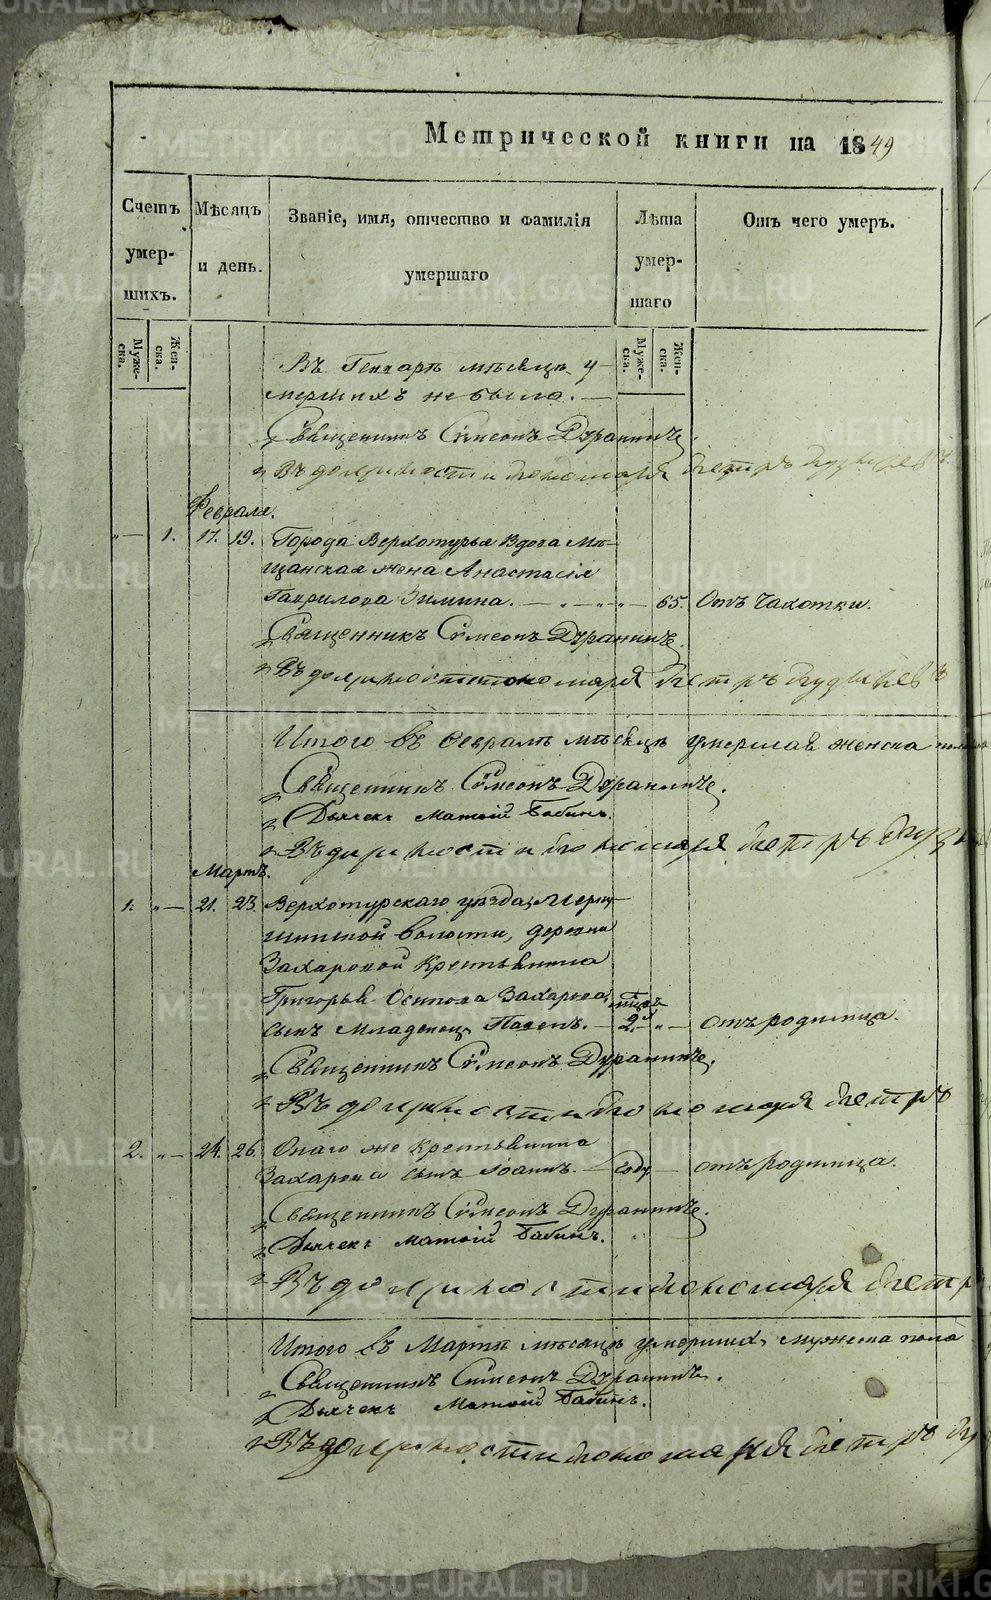 Метрической книги на 1849
Счетъ умер- шихъ.
Мѣсяцъ и день.
Званіе, имя, отчество и фамилія умершаго
Лѣта умер- шаго
Отъ чего умеръ.
Муже- ска.
Жен- ска.
Муже- ска.
Жен- ска.
Въ Генварѣ мѣсяцѣ у-
мершихъ не было. —
Священникъ Симеонъ
Въ должности пономаря Петръ
Февраля.
" — 1. 17. 19. Города Верхотурья вдова Мѣ-
щанская жена Анастасія
Гаврилова Зимина. — " — " — " — 65. Отъ чахотки.
Священникъ Симеонъ
Въ должности пономаря Петръ
Итого въ Февралѣ мѣсяцѣ умершая женска пола
Священникъ Симеонъ
Дьячекъ Матѳій Бабинъ.
Въ должности пономаря Петръ
Мартъ.
1. " — 21. 23. Верхотурскаго уѣзда, Мерку-
шинской волости, деревни
Захаровой Крестьянина
Григорья Осипова Захарова,
сынъ младенец, Павелъ. — 2. " — отъ родимца.
Священникъ Симеонъ
Въ должности пономаря Петръ
2. " — 24. 26. Онаго же крестьянина
Захарова сынъ Іоаннъ. — году — отъ родимца.
Священникъ Симеонъ
Дьячекъ Матѳій Бабинъ.
Въ должности пономаря Петръ
Итого въ Мартѣ мѣсяцѣ умерших, мужеска пола
Священникъ Симеонъ
Дьячекъ Матѳій Бабинъ.
Въ должности пономаря Петръ
METRIKI.GASO-URAL.RU